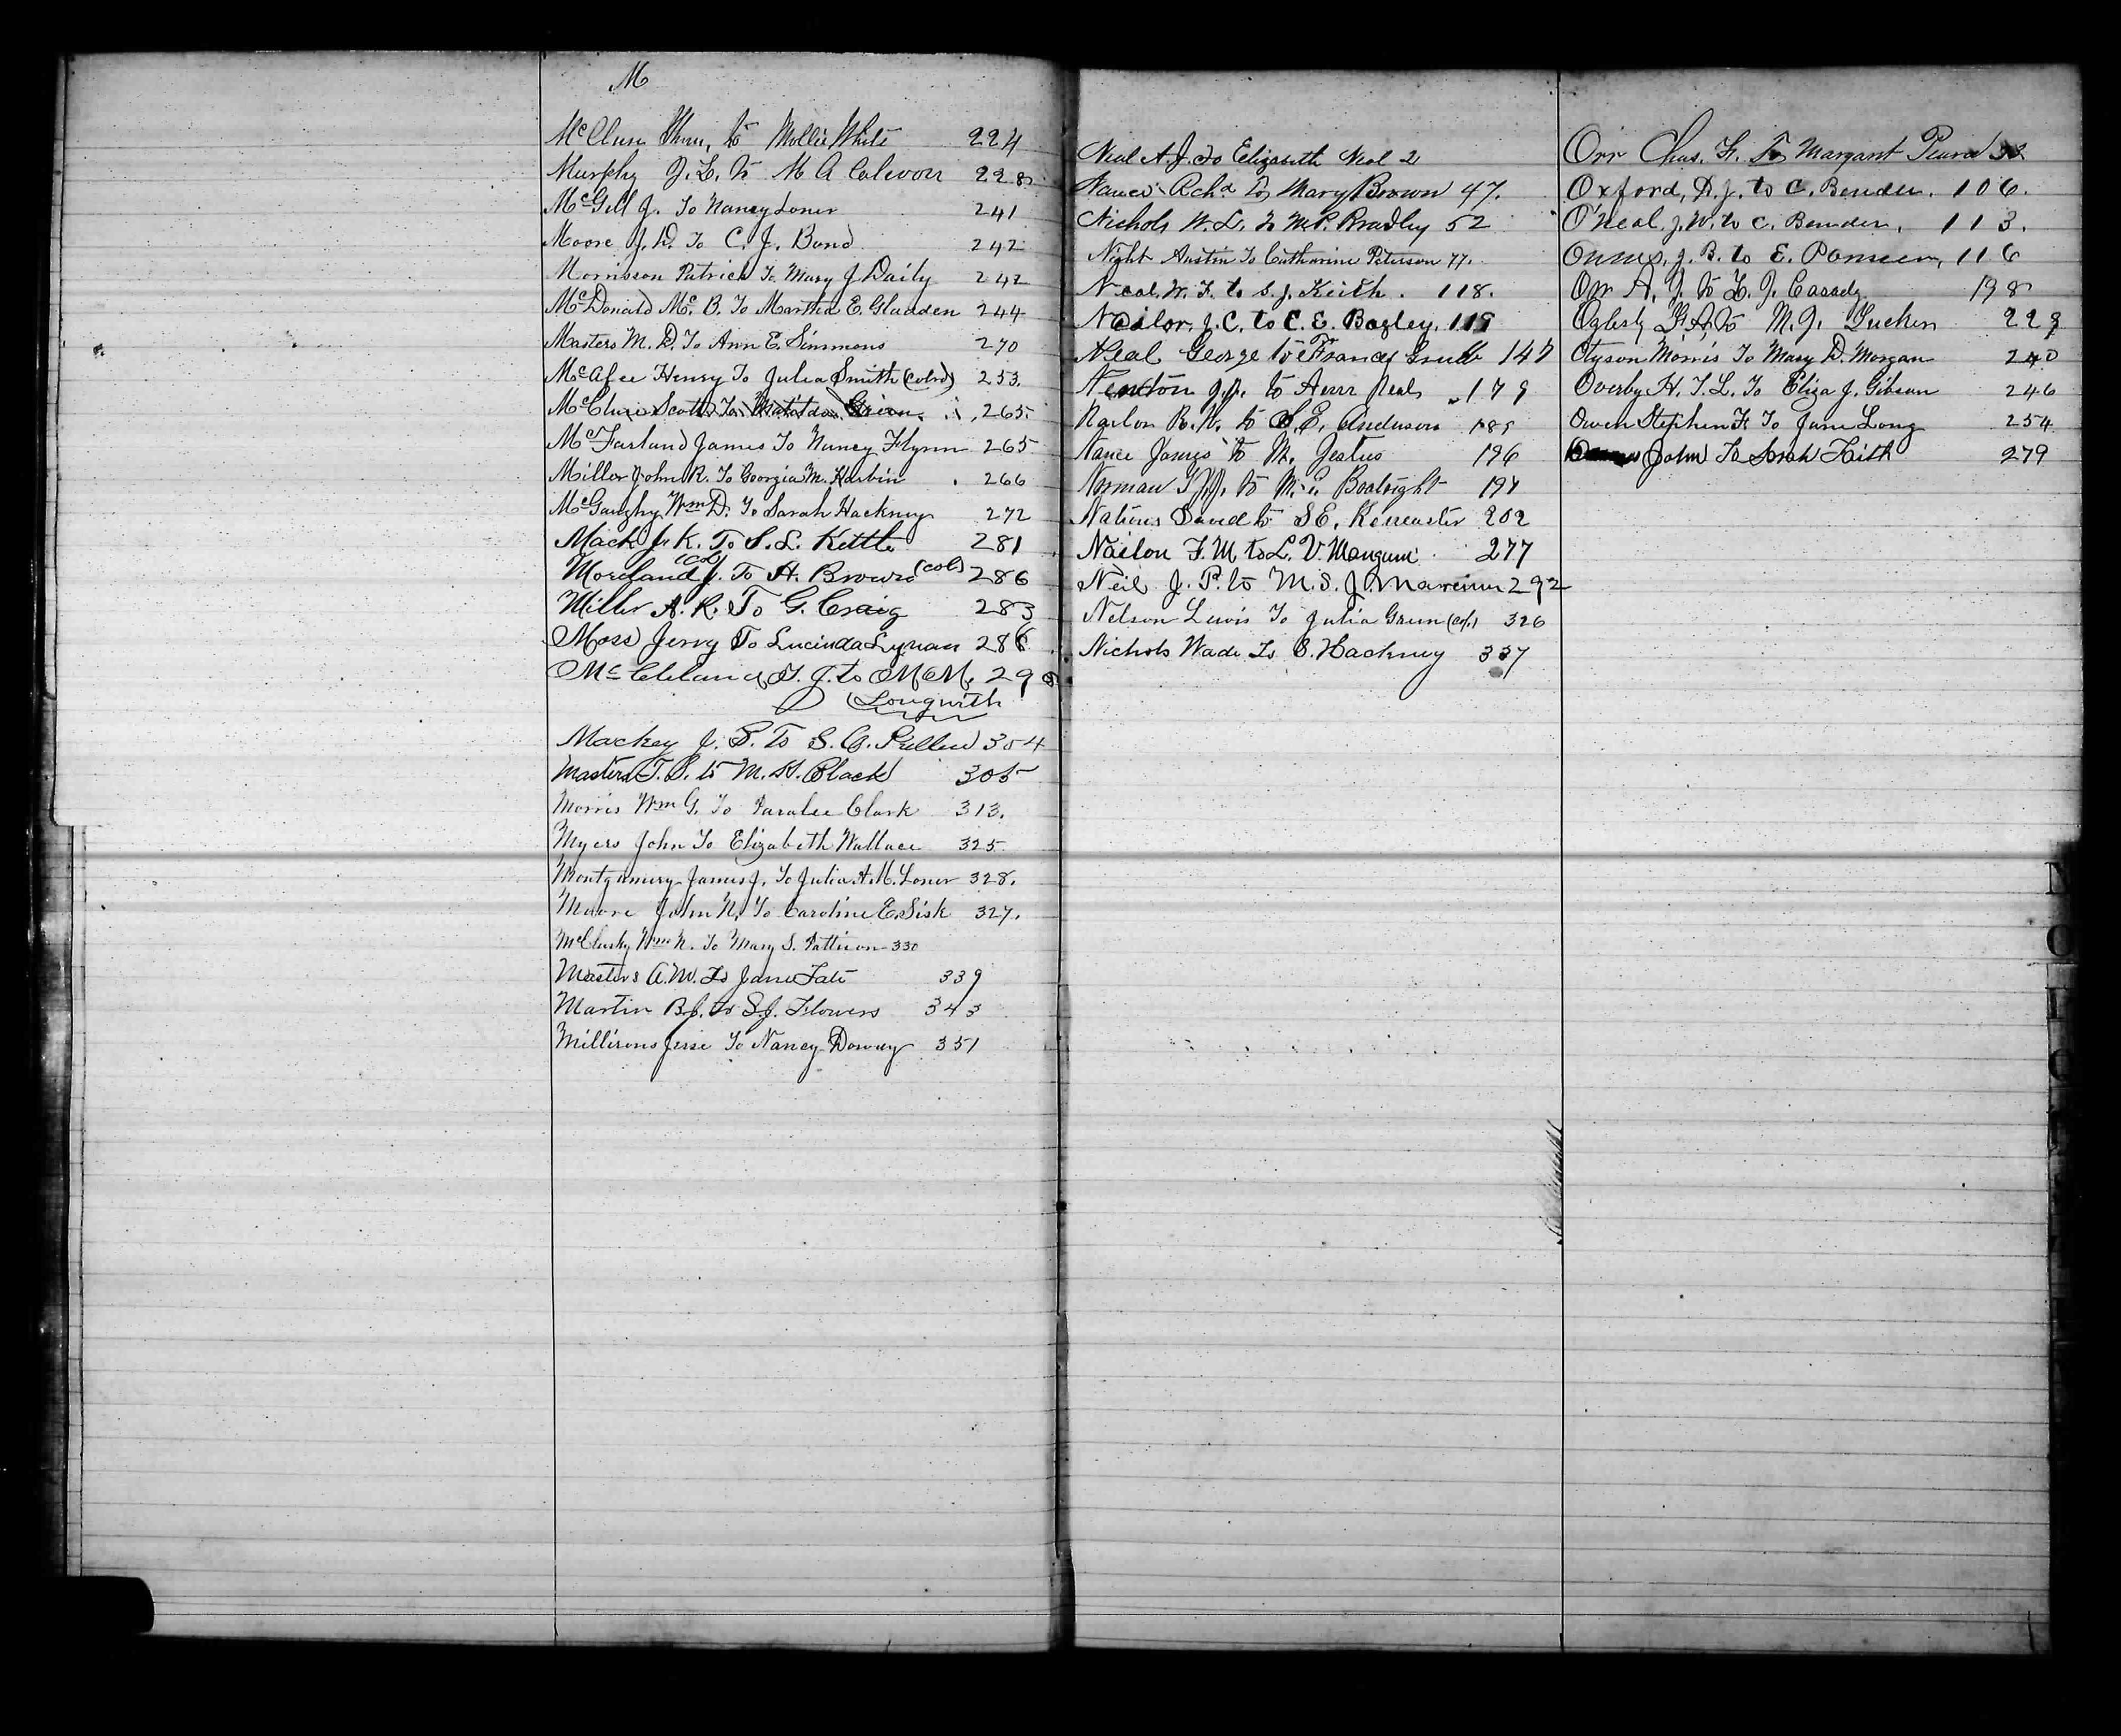 M
McClure Thom, to Mollie White 224
Murphy J. L. to M A Calevorr 228
McGill J. To Nancy Loner 241
Moore J. D. To C. J. Bond 242
Morrisson Patrick To Mary J Daily 242
McDonald Mc. B. To Martha E. Gladden 244
Masters M. D. To Ann E. Simmons 270
McAfee Henry To Julia Smith (cold) 253.
McClure Scott To Matilda Green 265
McFarland James To Nancy Flynn 265
Miller John R. To Georgia M. Harbin 266
McGaughy Wm D. To Sarah Hackney 272
Mack J. K. To S. L. Kettle 281
Moreland J. (Col) To H. Brown (col) 286
Miller A. R. To G. Craig 283
Moss Jerry To Lucinda Lyman 286
McCleland T. J. to M M. 298
Longwith
Mackey J. S. to S. A. Pullen 304
Masters T. S. to M. H. Black 305
Morris Wm G. To Paralee Clark 313.
Myers John To Elizabeth Wallace 325
Montgomery James J. To Julia A. M. Loner 328.
Moore John N. To Caroline E. Sisk 327.
McClusky Wm N. To Mary S. Pattison 330
Masters A. M. To Jane Tate 339
Martin B. J. to S. J. Flowers 343
Millirons Jesse To Nancy Downy 351
Neal A. J. to Elizabeth Neal 2
Nance Rchd. to Mary Brown 47.
Nichols W. L. to M. P. Bradley 52
Night Austin To Catharine Peterson 77.
Neal, W. F. to S. J. Keith. 118.
Nailor, J. C. to C. E. Bagley. 119
Neal George to Francy Grubb 147
Newton J. A. to Ann Neal 179
Nailon R. W. to S. E. Anderson 185
Nance James to M. Jestus 196
Norman T. J. to M. E. Boatright 197
Nations David to S E. 202
Nailon F. M to L. V. Mangum 277
Neil J. P. to M. S. J. 292
Nelson Lewis To Julia Green (col.) 326
Nichols Wade To S. Hackney 337
Orr Chas. F. To Margart Peard 32
Oxford, D. J. to C. Bender. 106.
O'Neal. J. W. to C. Benden. 113.
J. B. to E. 116
Orr A. J. to L. J. Casady 198
Oglesby G. A. to M. J. 229
Otyson Morris To Mary D. Morgan 240
Overby H. T. L. To Eliza J. Gibson 246
Owen Stephen F. To Jane Long 254
John To Sarah Keith 279